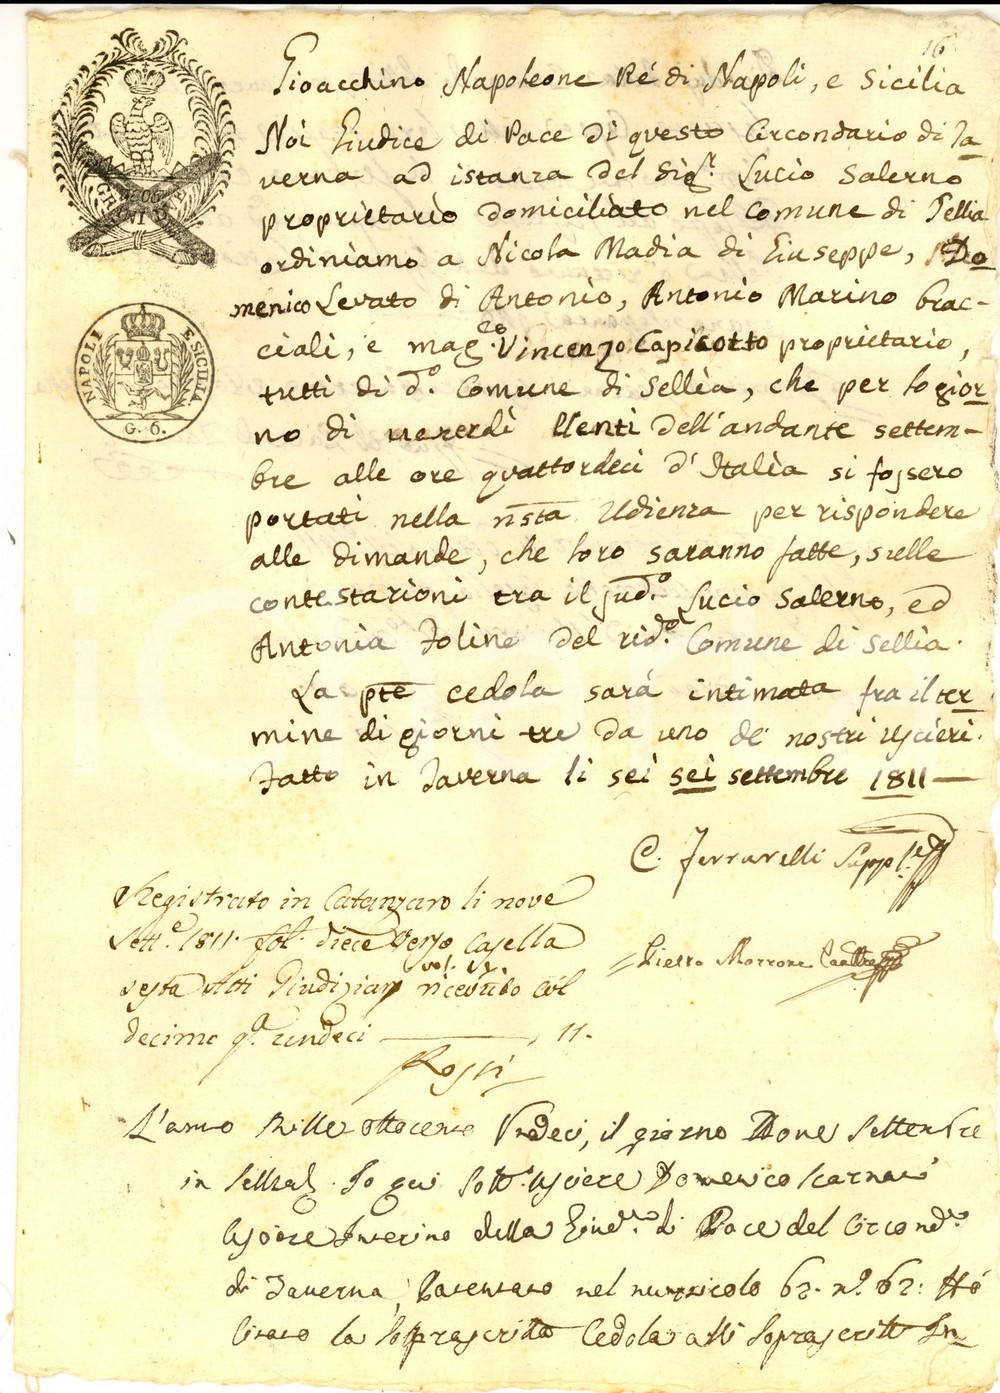 16
Gioacchino Napoleone Ré di Napoli, e Sicilia
Noi Giudice di Pace di questo Circondario di Ta
verna ad istanza del Sig.r Lucio Salerno
proprietario domiciliato nel Comune di Sellia
ordiniamo a Nicola Madia di Giuseppe, Do
menico Levato di Antonio, Antonio Marino brac-
ciali, e mag.co Vincenzo Capicotto proprietario,
tutti di d.o Comune di Sellia, che per lo gior
no di venerdì Venti dell'andante settem-
bre alle ore quattordeci d'Italia si fossero
portati nella nsta Udienza per rispondere
alle dimande, che loro saranno fatte, sulle
contestazioni tra il sud.o Lucio Salerno, ed
Antonia Folino del rid.o Comune di Sellia.
La pte cedola sarà intimata fra il ter
mine di giorni tre da uno de' nostri uscieri.
Fatto in Taverna li sei sei settembre 1811
NAPOLI E SICILIA
G. 6.
C. Ferrarelli Suppl.e
Registrato in Catanzaro li nove
Sett.e 1811. fol. diece Verso Casella
vol.
sesta Atti Giudiziarj ricevuto Col
decimo g.a undeci 11.
Rossi
Pietro Morrone Canc
L'anno Mille ottocento Undeci, il giorno Nove Settembre
in Sellia. Io qui sott. Usciere Domenico Scarna
Usciere Interino della Giud. di Pace del Circond.o
di Taverna, Patentato nel numero 62. n.o 62: Hò
Citato la Soprascritta Cedola alli Soprascritti In